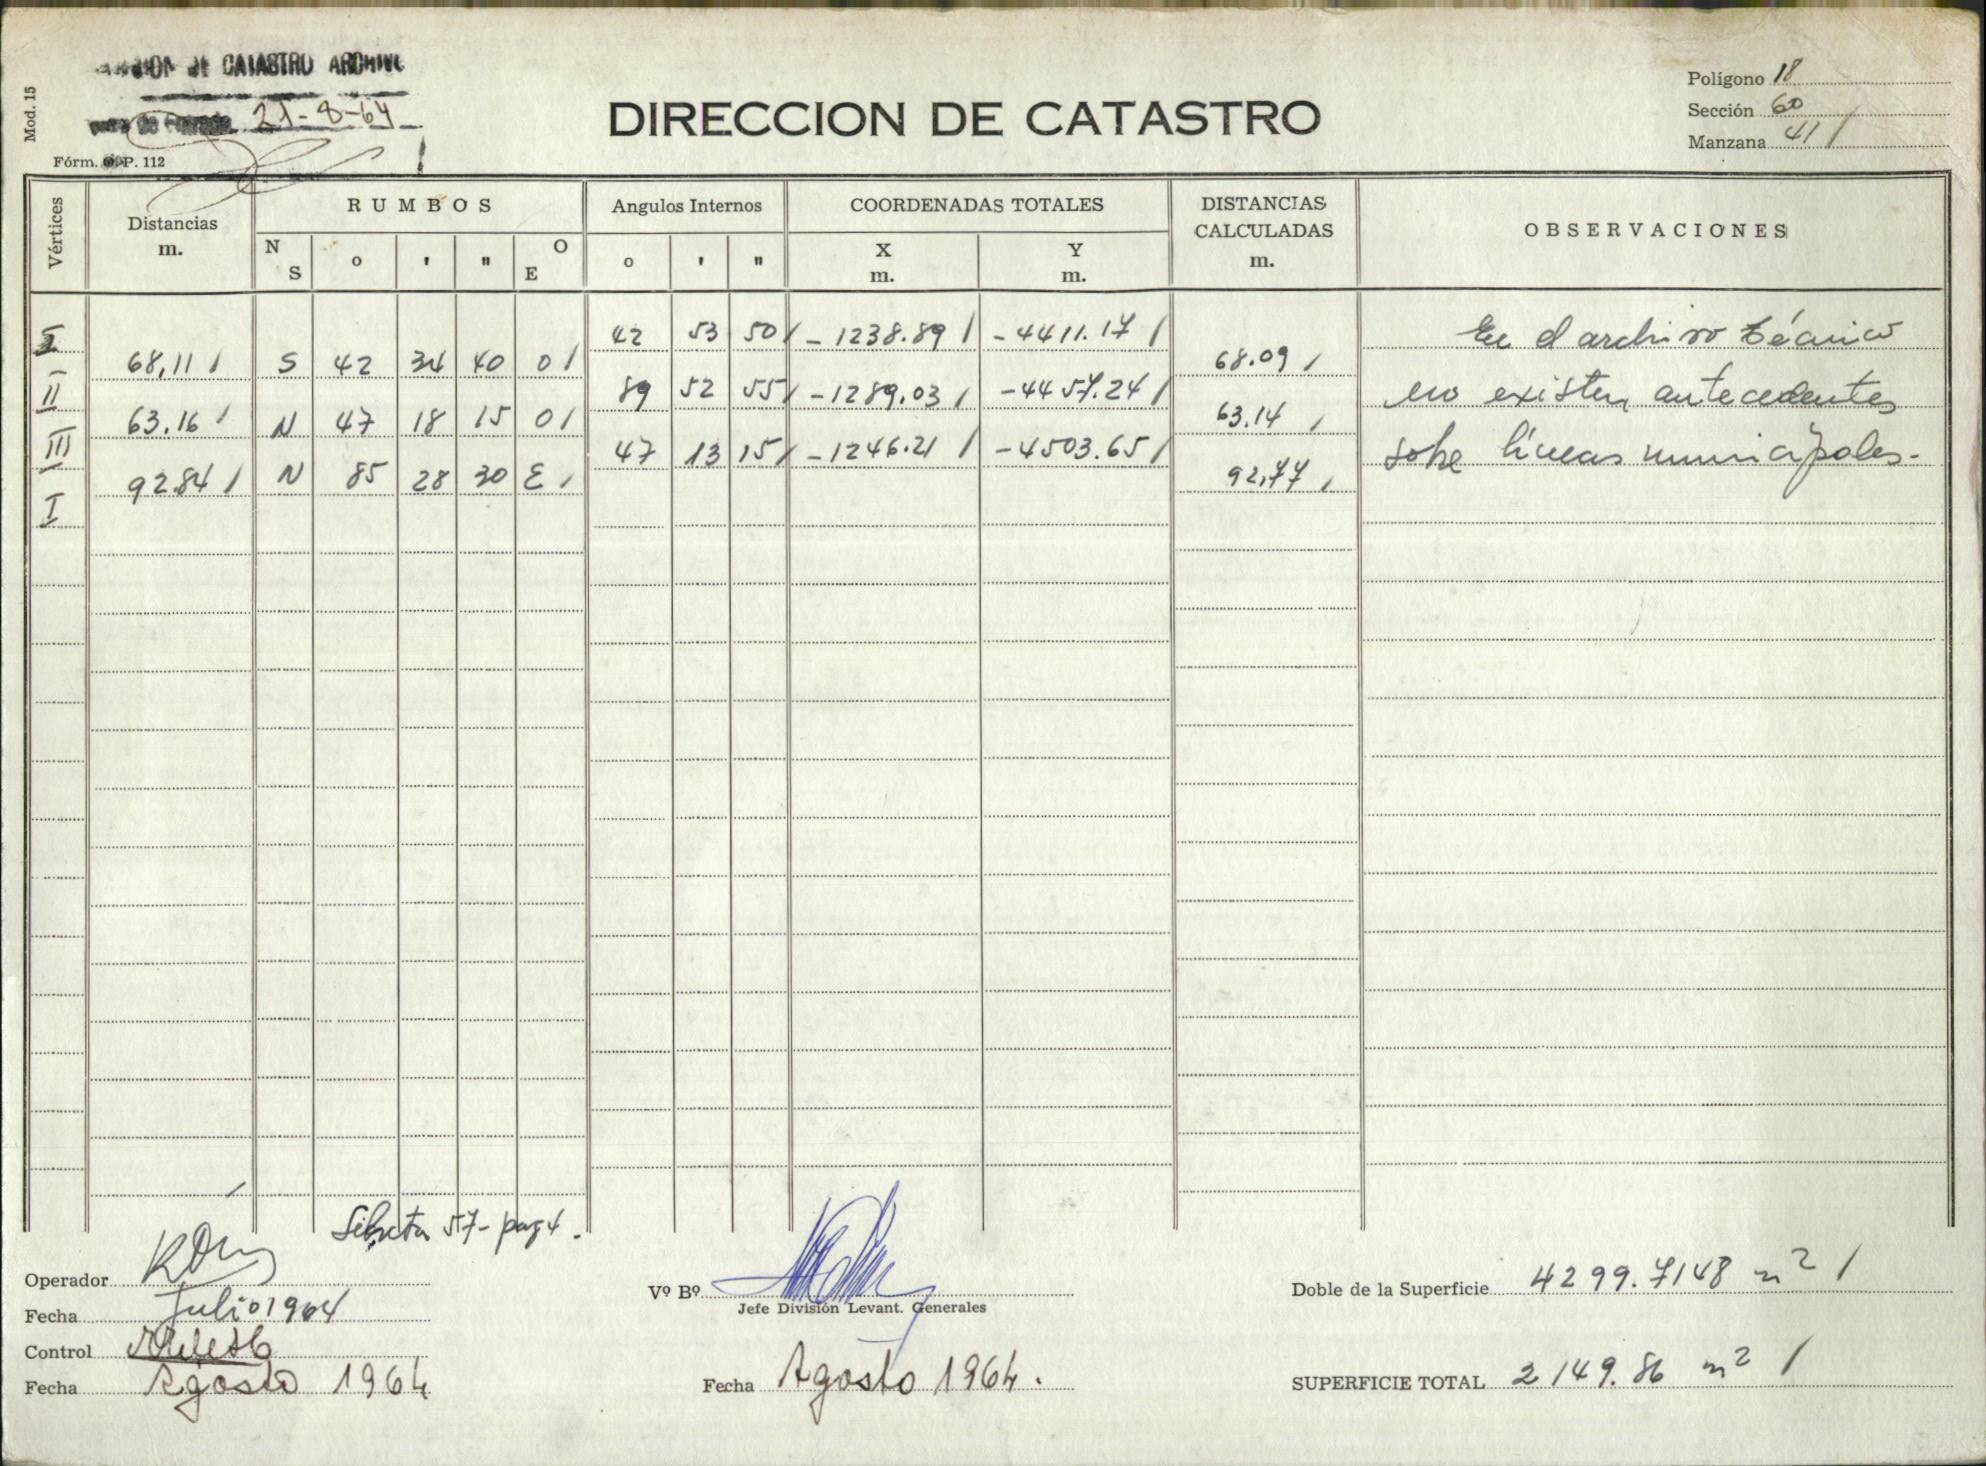 DE CATASTRO ARCHIVO
21-8-64
Mod. 15
Fórm. P. 112
DIRECCION DE CATASTRO
Polígono 18
Sección 60
Manzana 41 /
Vértices
Distancias
m.
RUMBOS
N S
o ' "
O E
Angulos Internos
o ' "
COORDENADAS TOTALES
X m.
Y m.
DISTANCIAS CALCULADAS
m.
OBSERVACIONES
I 42 53 50 / - 1238.89 / - 4411.17 / En el archivo técnico
68,11 / S 42 34 40 O / 68.09 /
II 89 52 55 / - 1289.03 / - 4457.24 / no existen antecedentes
63.16 / N 47 18 15 O / 63.14 /
III 47 13 15 / - 1246.21 / - 4503.65 / sobre líneas municipales.-
92.84 / N 85 28 30 E / 92,77 /
I
Libreta 57 - pag 4.
Operador
Fecha Julio 1964
Control
Fecha Agosto 1964
Vº Bº
Jefe División Levant. Generales
Fecha Agosto 1964.
Doble de la Superficie 4299.7148 m2 /
SUPERFICIE TOTAL 2149.86 m2 /